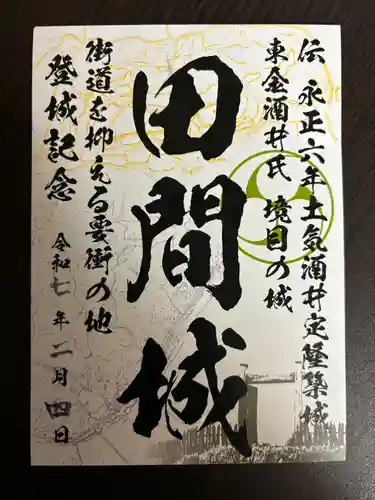 伝 永正六年土気酒井定隆築城
東金酒井氏 境目の城
田間城
街道を抑える要衝の地
登城記念
令和七年二月四日